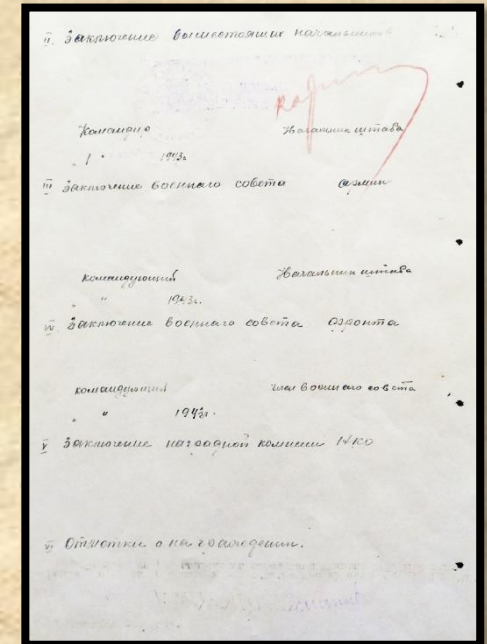 II. Заключение вышестоящих начальников
Командир Начальник штаба
" " 1943г.
III Заключение военного совета армии
Командующий Начальник штаба
" " 1943г.
IV. Заключение военного совета фронта
командующий член военного совета
" " 1943г.
V Заключение наградной комиссии НКО
VI Отметки о награждении.